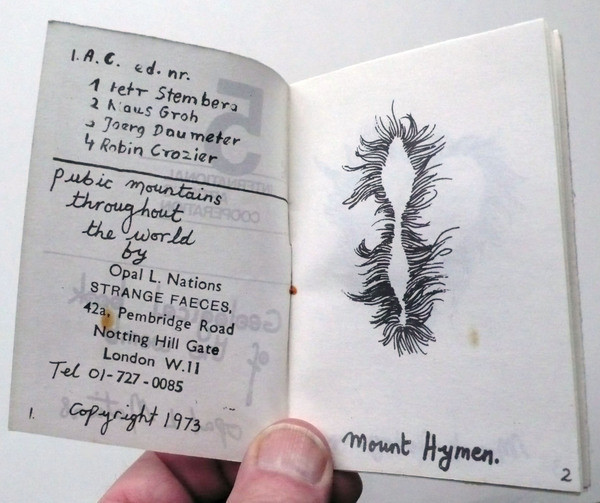 I.A.C. ed. nr.
1 Petr Stembera
2 Klaus Groh
3 Joerg Daumeter
4 Robin Crozier
pubic mountains
throughout
the world
by
Opal L. Nations
STRANGE FAECES,
42a, Pembridge Road
Notting Hill Gate
London W.11
Tel 01-727-0085
1. Copyright 1973
Mount Hymen.
2
5
INTERNATIONAL
COOPERATION
Geological
of